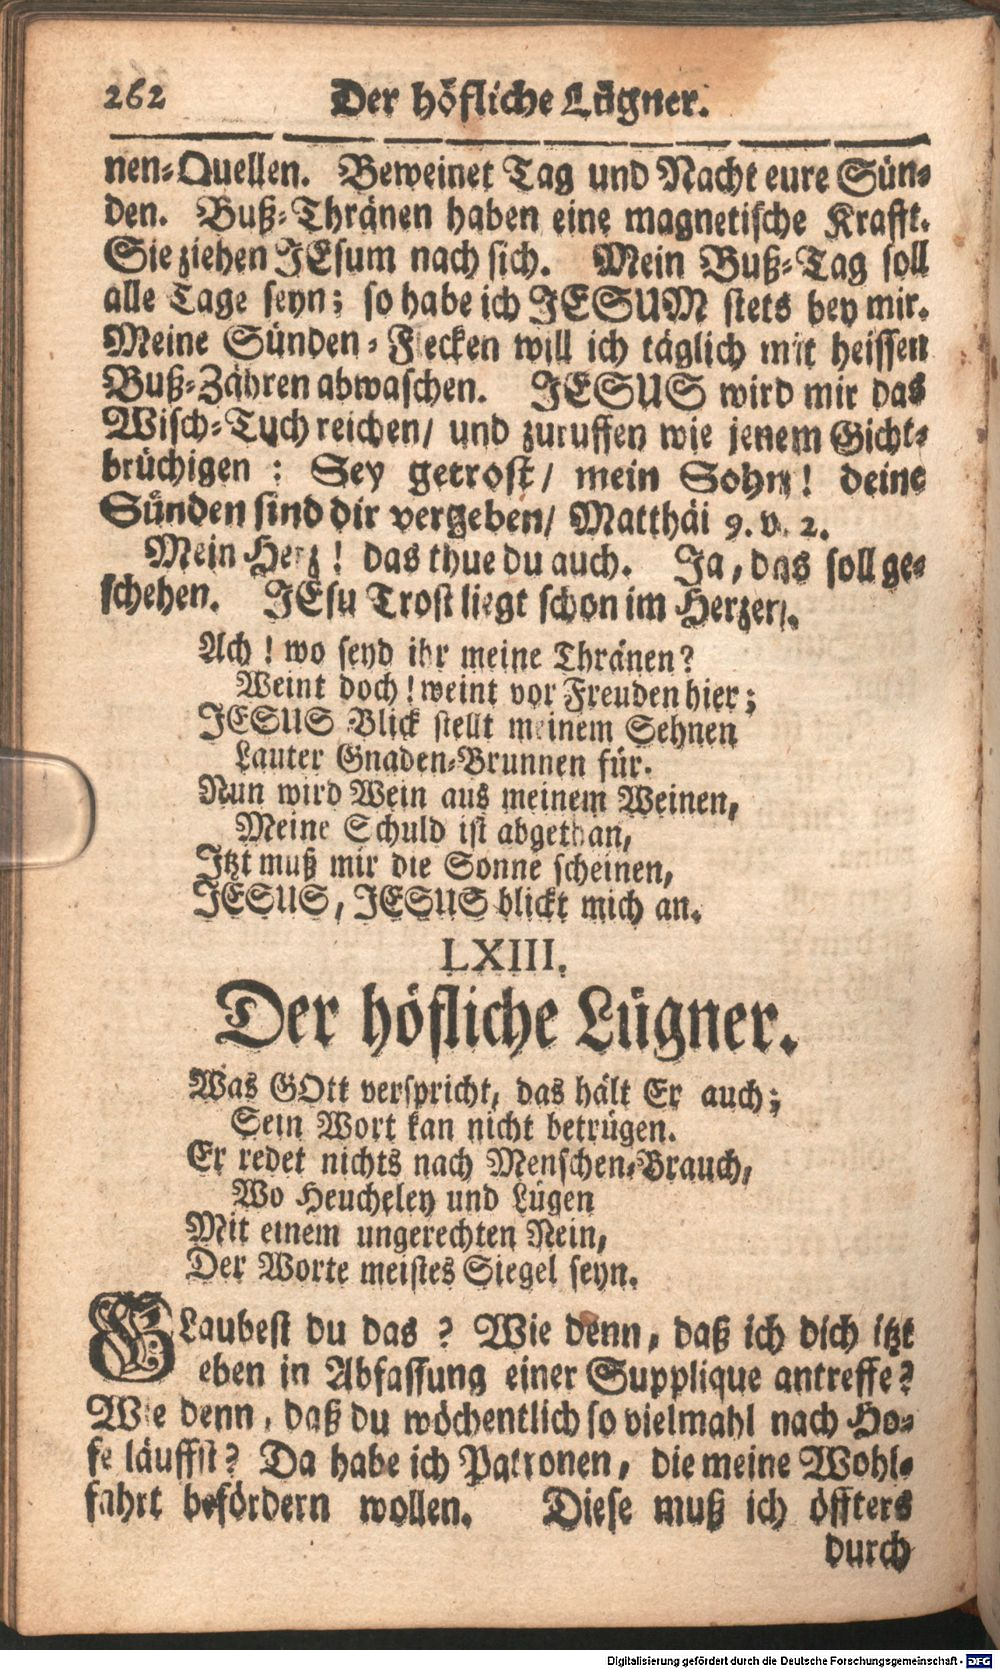 262 Der höfliche Lügner.
nen-Quellen. Beweinet Tag und Nacht eure Sün-
den. Buß-Thränen haben eine magnetische Krafft.
Sie ziehen JEsum nach sich. Mein Buß-Tag soll
alle Tage seyn; so habe ich JESUM stets bey mir.
Meine Sünden-Flecken will ich täglich mit heissen
Buß-Zähren abwaschen. JESUS wird mir das
Wisch-Tuch reichen/ und zuruffen wie jenem Gicht-
brüchigen: Sey getrost/ mein Sohn! deine
Sünden sind dir vergeben/ Matthäi 9. v. 2.
Mein Herz! das thue du auch. Ja, das soll ge-
schehen. JEsu Trost liegt schon im Herzen.
Ach! wo seyd ihr meine Thränen?
Weint doch! weint vor Freuden hier;
JESUS Blick stellt meinem Sehnen
Lauter Gnaden-Brunnen für.
Nun wird Wein aus meinem Weinen,
Meine Schuld ist abgethan,
Itzt muß mir die Sonne scheinen,
JESUS, JESUS blickt mich an.
LXIII.
Der höfliche Lügner.
Was GOtt verspricht, das hält Er auch;
Sein Wort kan nicht betrügen.
Er redet nichts nach Menschen-Brauch,
Wo Heucheley und Lügen
Mit einem ungerechten Nein,
Der Worte meistes Siegel seyn.
GLaubest du das? Wie denn, daß ich dich itzt
eben in Abfassung einer Supplique antreffe?
Wie denn, daß du wöchentlich so vielmahl nach Ho-
fe läuffst? Da habe ich Patronen, die meine Wohl-
fahrt befördern wollen. Diese muß ich öffters
durch
Digitalisierung gefördert durch die Deutsche Forschungsgemeinschaft - DFG